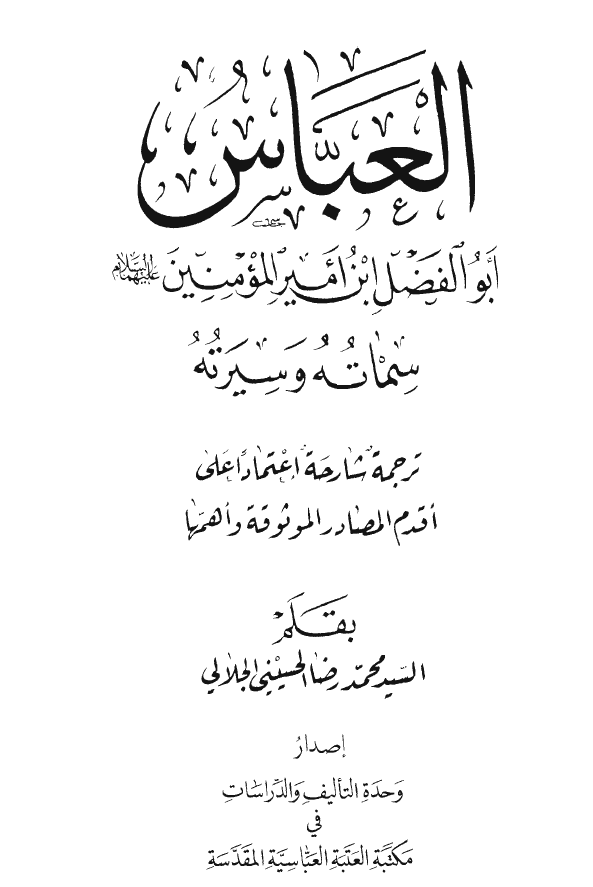 العَبَّاسُ
أَبُو الفَضْلِ ابْنُ أَمِيرِ المُؤْمِنِينَ عليهما السلام
سِمَاتُهُ وَسِيرَتُهُ
ترجمةٌ شارحَةٌ اعْتمادًا عَلى
أقدم المصادر الموثوقة وأهمّها
بِقَلَم
السّيد محمّد رضا الحسيني الجلالي
إصدارُ
وَحدَةِ التأليفِ وَالدِّرَاسَاتِ
في
مَكتَبَةِ العَتَبَةِ العَبَّاسِيَّةِ المُقَدَّسَةِ